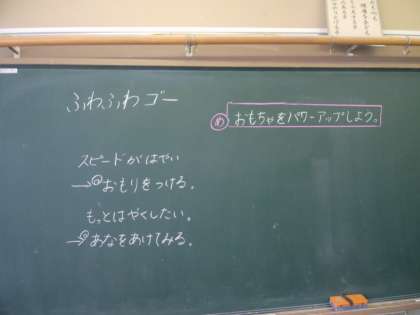 ふわふわゴー
め おもちゃをパワーアップしよう。
スピードがはやい
→おもりをつける。
もっとはやくしたい。
→あなをあけてみる。